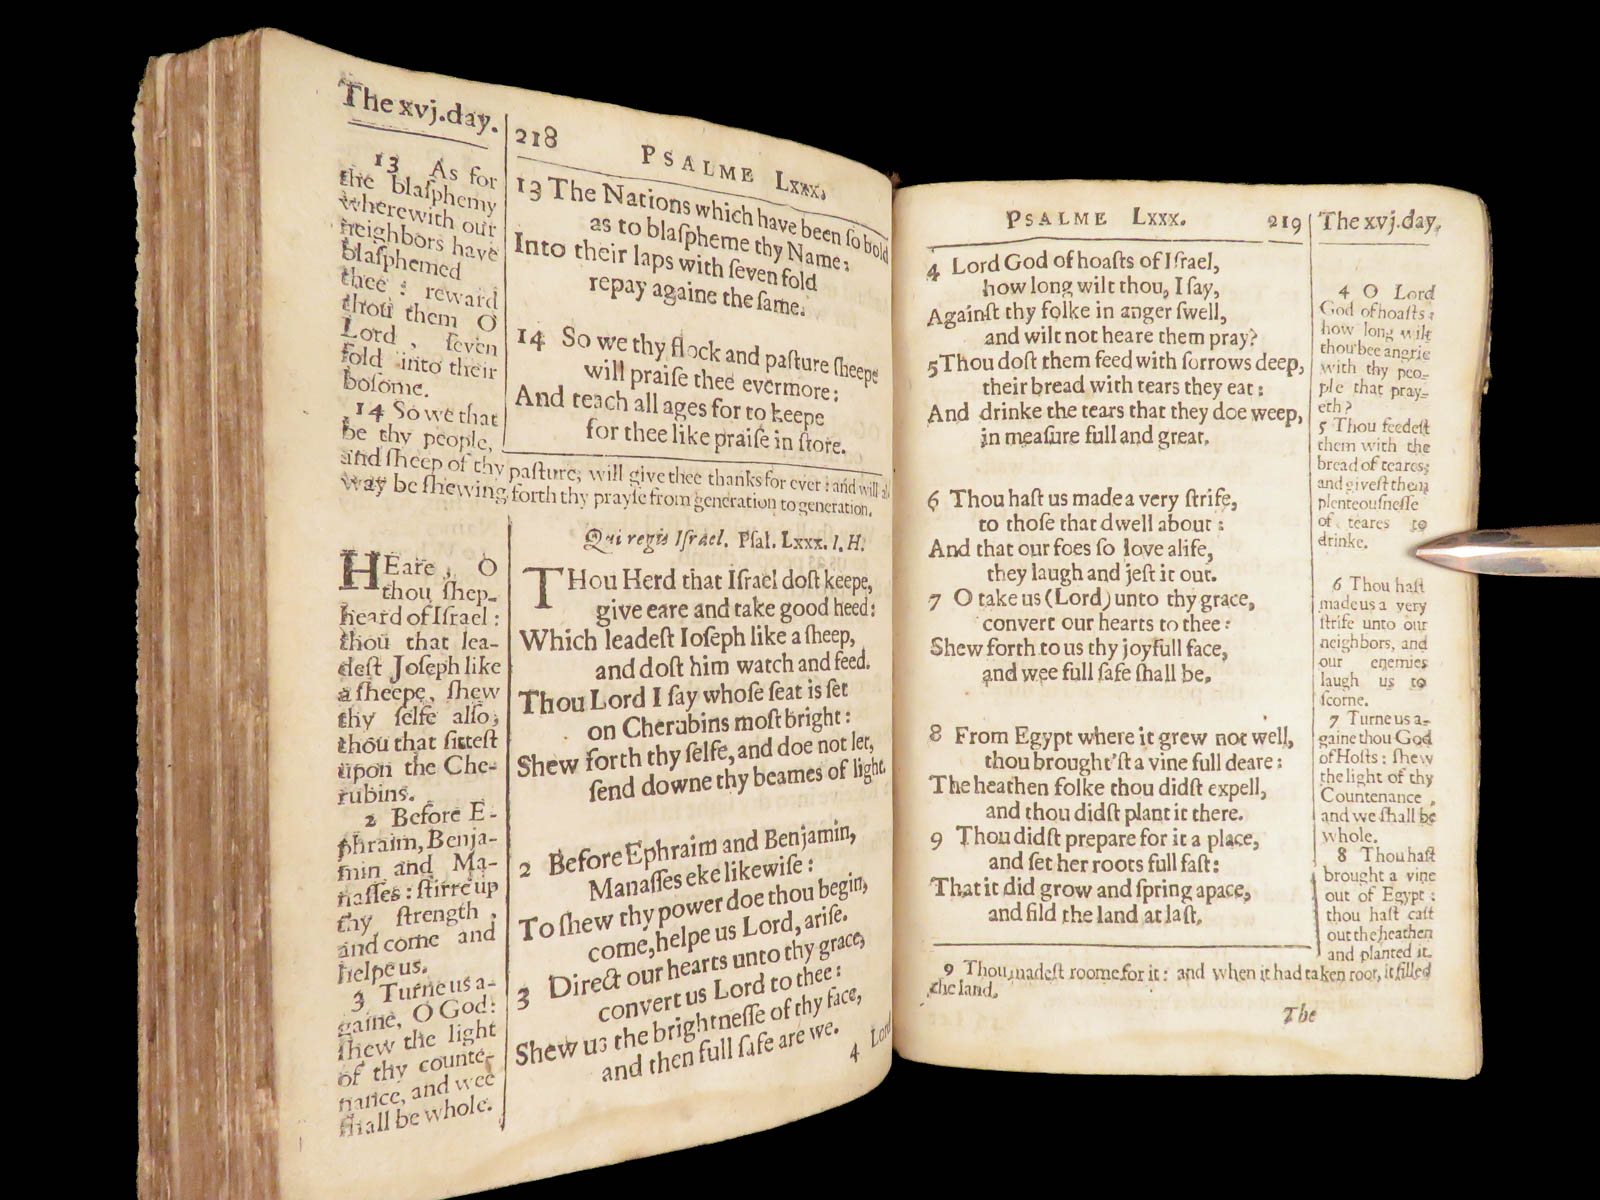 The xvj.day.
13 As for
the blaſphemy
wherewith our
neighbors have
blaſphemed
thee : reward
thou them O
Lord , ſeven
fold into their
boſome.
14 So we that
be thy people,
and ſheep of thy paſture, will give thee thanks for ever : and will al
way be ſhewing forth thy prayſe from generation to generation.
HEare , O
thou ſhep-
heard of Iſrael :
thou that lea-
deſt Joſeph like
a ſheepe, ſhew
thy ſelfe alſo,
thou that ſitteſt
upon the Che-
rubins.
2 Before E-
phraim, Benja-
min and Ma-
naſſes : ſtirre up
thy ſtrength ,
and come and
helpe us.
3 Turne us a-
gaine, O God:
ſhew the light
of thy counte-
nance, and wee
ſhall be whole.
218 PSALME LXXX.
13 The Nations which have been ſo bold
as to blaſpheme thy Name;
Into their laps with ſeven fold
repay againe the ſame.
14 So we thy flock and paſture ſheepe
will praiſe thee evermore:
And teach all ages for to keepe
for thee like praiſe in ſtore.
Qui regis Iſrael. Pſal. Lxxx. I. H.
THou Herd that Iſrael doſt keepe,
give eare and take good heed:
Which leadeſt Ioſeph like a ſheep,
and doſt him watch and feed.
Thou Lord I ſay whoſe ſeat is ſet
on Cherubins moſt bright :
Shew forth thy ſelfe, and doe not let,
ſend downe thy beames of light.
2 Before Ephraim and Benjamin,
Manaſſes eke likewiſe :
To ſhew thy power doe thou begin,
come, helpe us Lord, ariſe.
3 Direct our hearts unto thy grace,
convert us Lord to thee :
Shew us the brightneſſe of thy face,
and then full ſafe are we.
4 Lord
PSALME LXXX. 219
The xvj.day.
4 Lord God of hoaſts of Iſrael,
how long wilt thou, I ſay,
Againſt thy folke in anger ſwell,
and wilt not heare them pray?
5 Thou doſt them feed with ſorrows deep,
their bread with tears they eat :
And drinke the tears that they doe weep,
in meaſure full and great.
6 Thou haſt us made a very ſtrife,
to thoſe that dwell about :
And that our foes ſo love alife,
they laugh and jeſt it out.
7 O take us (Lord) unto thy grace,
convert our hearts to thee :
Shew forth to us thy joyfull face,
and wee full ſafe ſhall be.
8 From Egypt where it grew not well,
thou brought'ſt a vine full deare :
The heathen folke thou didſt expell,
and thou didſt plant it there.
9 Thou didſt prepare for it a place,
and ſet her roots full faſt:
That it did grow and ſpring apace,
and fild the land at laſt.
4 O Lord
God of hoaſts :
how long wilt
thou bee angrie
with thy peo-
ple that pray-
eth?
5 Thou feedeſt
them with the
bread of teares;
and giveſt them
plenteouſneſſe
of teares to
drinke.
6 Thou haſt
made us a very
ſtrife unto our
neighbors, and
our enemies
laugh us to
ſcorne.
7 Turne us a-
gaine thou God
of Hoſts : ſhew
the light of thy
Countenance ,
and we ſhall be
whole.
8 Thou haſt
brought a vine
out of Egypt :
thou haſt caſt
out the heathen
and planted it.
9 Thou madeſt roome for it : and when it had taken root, it filled
the land.
The